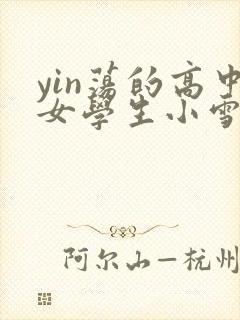 yin蕩的高中
女學生小雪
阿尔山—杭州